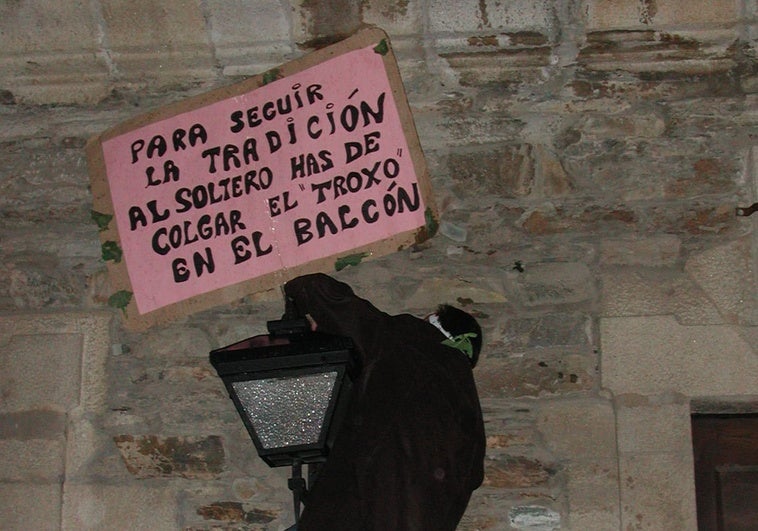 PARA SEGUIR
LA TRADICIÓN
AL SOLTERO HAS DE
COLGAR EL "TROXO"
EN EL BALCÓN